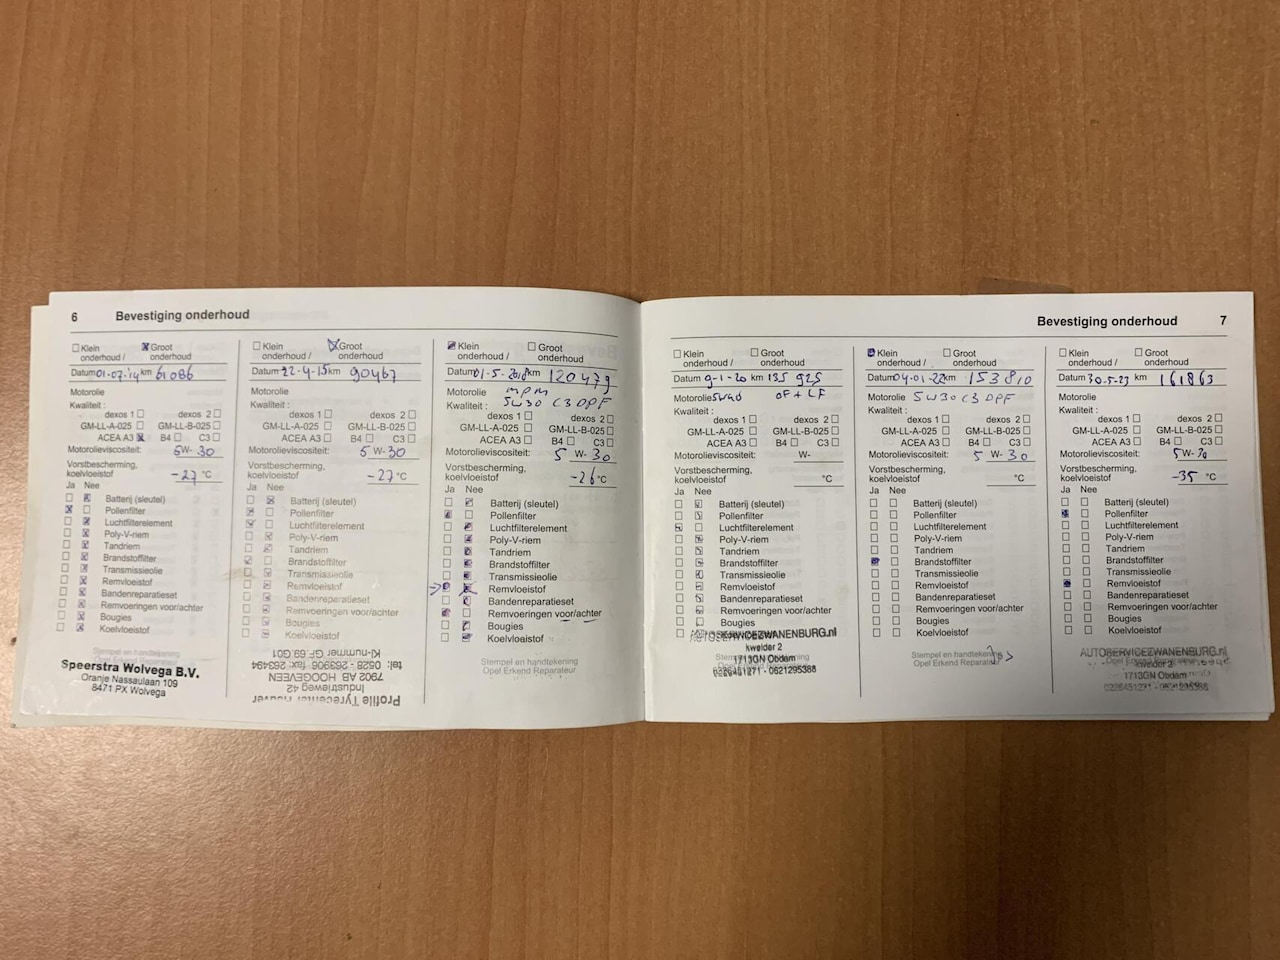 6 Bevestiging onderhoud
Klein onderhoud / Groot onderhoud
Datum 01-07-'14 km 61086
Motorolie
Kwaliteit :
dexos 1 dexos 2
GM-LL-A-025 GM-LL-B-025
ACEA A3 B4 C3
Motorolieviscositeit: 5W-30
Vorstbescherming,
koelvloeistof -27 °C
Ja Nee
Batterij (sleutel)
Pollenfilter
Luchtfilterelement
Poly-V-riem
Tandriem
Brandstoffilter
Transmissieolie
Remvloeistof
Bandenreparatieset
Remvoeringen voor/achter
Bougies
Koelvloeistof
Stempel en handtekening
Speerstra Wolvega B.V.
Oranje Nassaulaan 109
8471 PX Wolvega
Klein onderhoud / Groot onderhoud
Datum 22-4-15 km 90467
Motorolie
Kwaliteit :
dexos 1 dexos 2
GM-LL-A-025 GM-LL-B-025
ACEA A3 B4 C3
Motorolieviscositeit: 5W-30
Vorstbescherming,
koelvloeistof -27 °C
Ja Nee
Batterij (sleutel)
Pollenfilter
Luchtfilterelement
Poly-V-riem
Tandriem
Brandstoffilter
Transmissieolie
Remvloeistof
Bandenreparatieset
Remvoeringen voor/achter
Bougies
Koelvloeistof
Profile Tyrecenter
Industrieweg 42
7902 AB HOOGEVEEN
tel: 0528 - 263906 fax: 263494
KI-nummer GF 69 G01
Klein onderhoud / Groot onderhoud
Datum 01-5-2018 km 120479
Motorolie mpm
5W30 C3 DPF
Kwaliteit :
dexos 1 dexos 2
GM-LL-A-025 GM-LL-B-025
ACEA A3 B4 C3
Motorolieviscositeit: 5 W-30
Vorstbescherming,
koelvloeistof -26 °C
Ja Nee
Batterij (sleutel)
Pollenfilter
Luchtfilterelement
Poly-V-riem
Tandriem
Brandstoffilter
Transmissieolie
Remvloeistof
Bandenreparatieset
Remvoeringen voor/achter
Bougies
Koelvloeistof
Stempel en handtekening
Opel Erkend Reparateur
Bevestiging onderhoud 7
Klein onderhoud / Groot onderhoud
Datum 9-1-20 km 135 925
Motorolie OF + LF
Kwaliteit :
dexos 1 dexos 2
GM-LL-A-025 GM-LL-B-025
ACEA A3 B4 C3
Motorolieviscositeit: W-
Vorstbescherming,
koelvloeistof °C
Ja Nee
Batterij (sleutel)
Pollenfilter
Luchtfilterelement
Poly-V-riem
Tandriem
Brandstoffilter
Transmissieolie
Remvloeistof
Bandenreparatieset
Remvoeringen voor/achter
Bougies
AUTOSERVICEZWANENBURG.nl
kwelder 2
1713GN Obdam
0226451271 - 0621295388
Klein onderhoud / Groot onderhoud
Datum 04-01-22 km 153810
Motorolie 5W30 C3 DPF
Kwaliteit :
dexos 1 dexos 2
GM-LL-A-025 GM-LL-B-025
ACEA A3 B4 C3
Motorolieviscositeit: 5 W-30
Vorstbescherming,
koelvloeistof °C
Ja Nee
Batterij (sleutel)
Pollenfilter
Luchtfilterelement
Poly-V-riem
Tandriem
Brandstoffilter
Transmissieolie
Remvloeistof
Bandenreparatieset
Remvoeringen voor/achter
Bougies
Koelvloeistof
Stempel en handtekening
Opel Erkend Reparateur
Klein onderhoud / Groot onderhoud
Datum 30.5-23 km 161863
Motorolie
Kwaliteit :
dexos 1 dexos 2
GM-LL-A-025 GM-LL-B-025
ACEA A3 B4 C3
Motorolieviscositeit: 5W-30
Vorstbescherming,
koelvloeistof -35 °C
Ja Nee
Batterij (sleutel)
Pollenfilter
Luchtfilterelement
Poly-V-riem
Tandriem
Brandstoffilter
Transmissieolie
Remvloeistof
Bandenreparatieset
Remvoeringen voor/achter
Bougies
Koelvloeistof
AUTOSERVICEZWANENBURG.nl
kwelder 2
1713GN Obdam
0226451271 - 0621295388